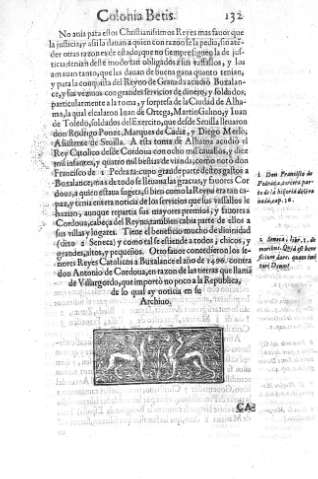 Colonia Betis.
132
No auia para estos Christianissimos Reyes mas fauor que
la justicia, y assi la dauan a quien con razon se la pedia, sin atender
otras razones de estado, que no siempre sigue, la de justicia
tenian deste modo tan obligados a sus vassallos, y los
amauan tanto, que les dauan de buena gana quanto tenian,
y para la conquista del Reyno de Granada acudió Buxalance,
y sus vezinos con grandes seruicios de dinero, y soldados,
particularmente a la toma, y sorpresa de la Ciudad de Alhama,
la qual escalaron Iuan de Ortega, Martin Galindo, y Iuan
de Toledo, soldados del Exercito, que desde Seuilla lleuaron
don Rodrigo Ponce, Marques de Cadiz, y Diego Merlo,
Assistente de Seuilla. A esta toma de Alhama acudió el
Rey Catolico desde Cordoua con ocho mil cauallos, y diez
mil infantes, y quatro mil bestias de vianda, como notò don
Francisco de 1 Pedraza:
Buxalance; mas de todo se lleuaua las gracias, y fauores Cordoua,
a quien estaua sugeta, si bien como la Reyna era tan capaz,
y tenia entera noticia de los seruicios que sus vassallos le
hazian, aunque repartia sus mayores premios, y fauores a
Cordoua, cabeça del Reyno, tambien cabia parte de ellos a
sus villas y lugares. Tiene el beneficio mucho de diuinidad
(dixo 2 Seneca) y como tal se estiende a todos, chicos, y
grandes, altos, y pequeños. Otro fauor concedieron los señores
Reyes Catolicos a Buxalance el año de 1496. contra
don Antonio de Cordoua, en razon de las tierras que llaman
de Villargordo, que importò no poco a la Republica,
de lo qual ay noticia en su
Archiuo.
1 Don Francisco de
Pedraza, tercera parte
de la historia de Granada,
cap. 16.
2 Seneca, libr. 3. de
CA-